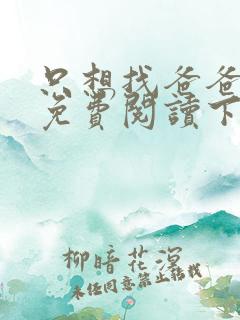 只想找爸爸
免費閱讀下
柳暗花溟
未经同意禁止转载